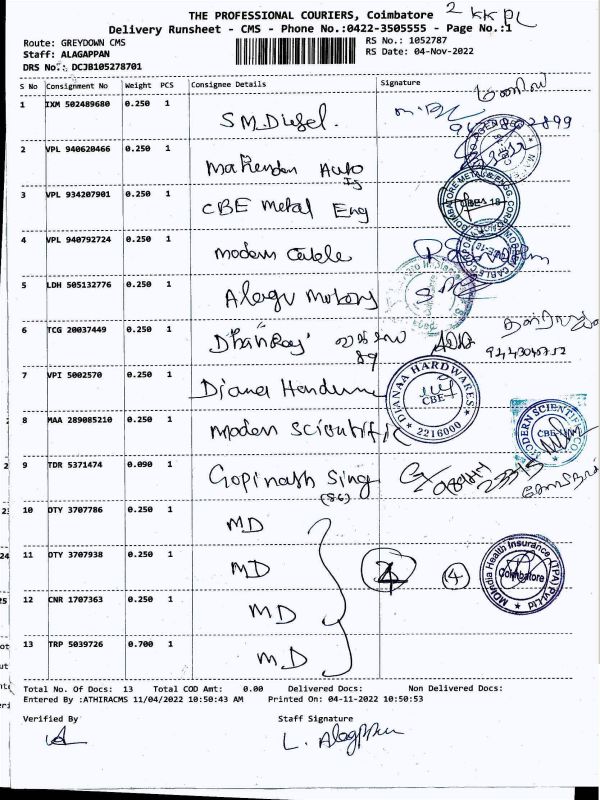 THE PROFESSIONAL COURIERS, Coimbatore 2 KKPL
Delivery Runsheet - CMS - Phone No.:0422-3505555 - Page No.:1
Route: GREYDOWN CMS RS No.: 1052787
Staff: ALAGAPPAN RS Date: 04-Nov-2022
DRS No.: DCJB105278701
S No Consignment No Weight PCS Consignee Details Signature
1 IXM 502489680 0.250 1 SM Diesel.
2 VPL 940620466 0.250 1 Mahendra Auto
3 VPL 934207901 0.250 1 CBE Metal Eng
4 VPL 940792724 0.250 1 modern Cable
5 LDH 505132776 0.250 1 Alagu Motors
6 TCG 20037449 0.250 1 Dhanraj 89
7 VPI 5002570 0.250 1 Diana Hardware DIANAA HARDWARES CBE 2216000
8 MAA 289085210 0.250 1 modern Scientific MODERN SCIENTIFIC CO CBE
9 TDR 5371474 0.090 1 Gopinath Sing (86)
10 DTY 3707786 0.250 1 MD
11 DTY 3707938 0.250 1 MD 4 MDIndia Health Insurance (TPA) Pvt.Ltd Coimbatore
12 CNR 1707363 0.250 1 MD
13 TRP 5039726 0.700 1 MD
Total No. Of Docs: 13 Total COD Amt: 0.00 Delivered Docs: Non Delivered Docs:
Entered By :ATHIRACMS 11/04/2022 10:50:43 AM Printed On: 04-11-2022 10:50:53
Verified By Staff Signature
L. Alagappan